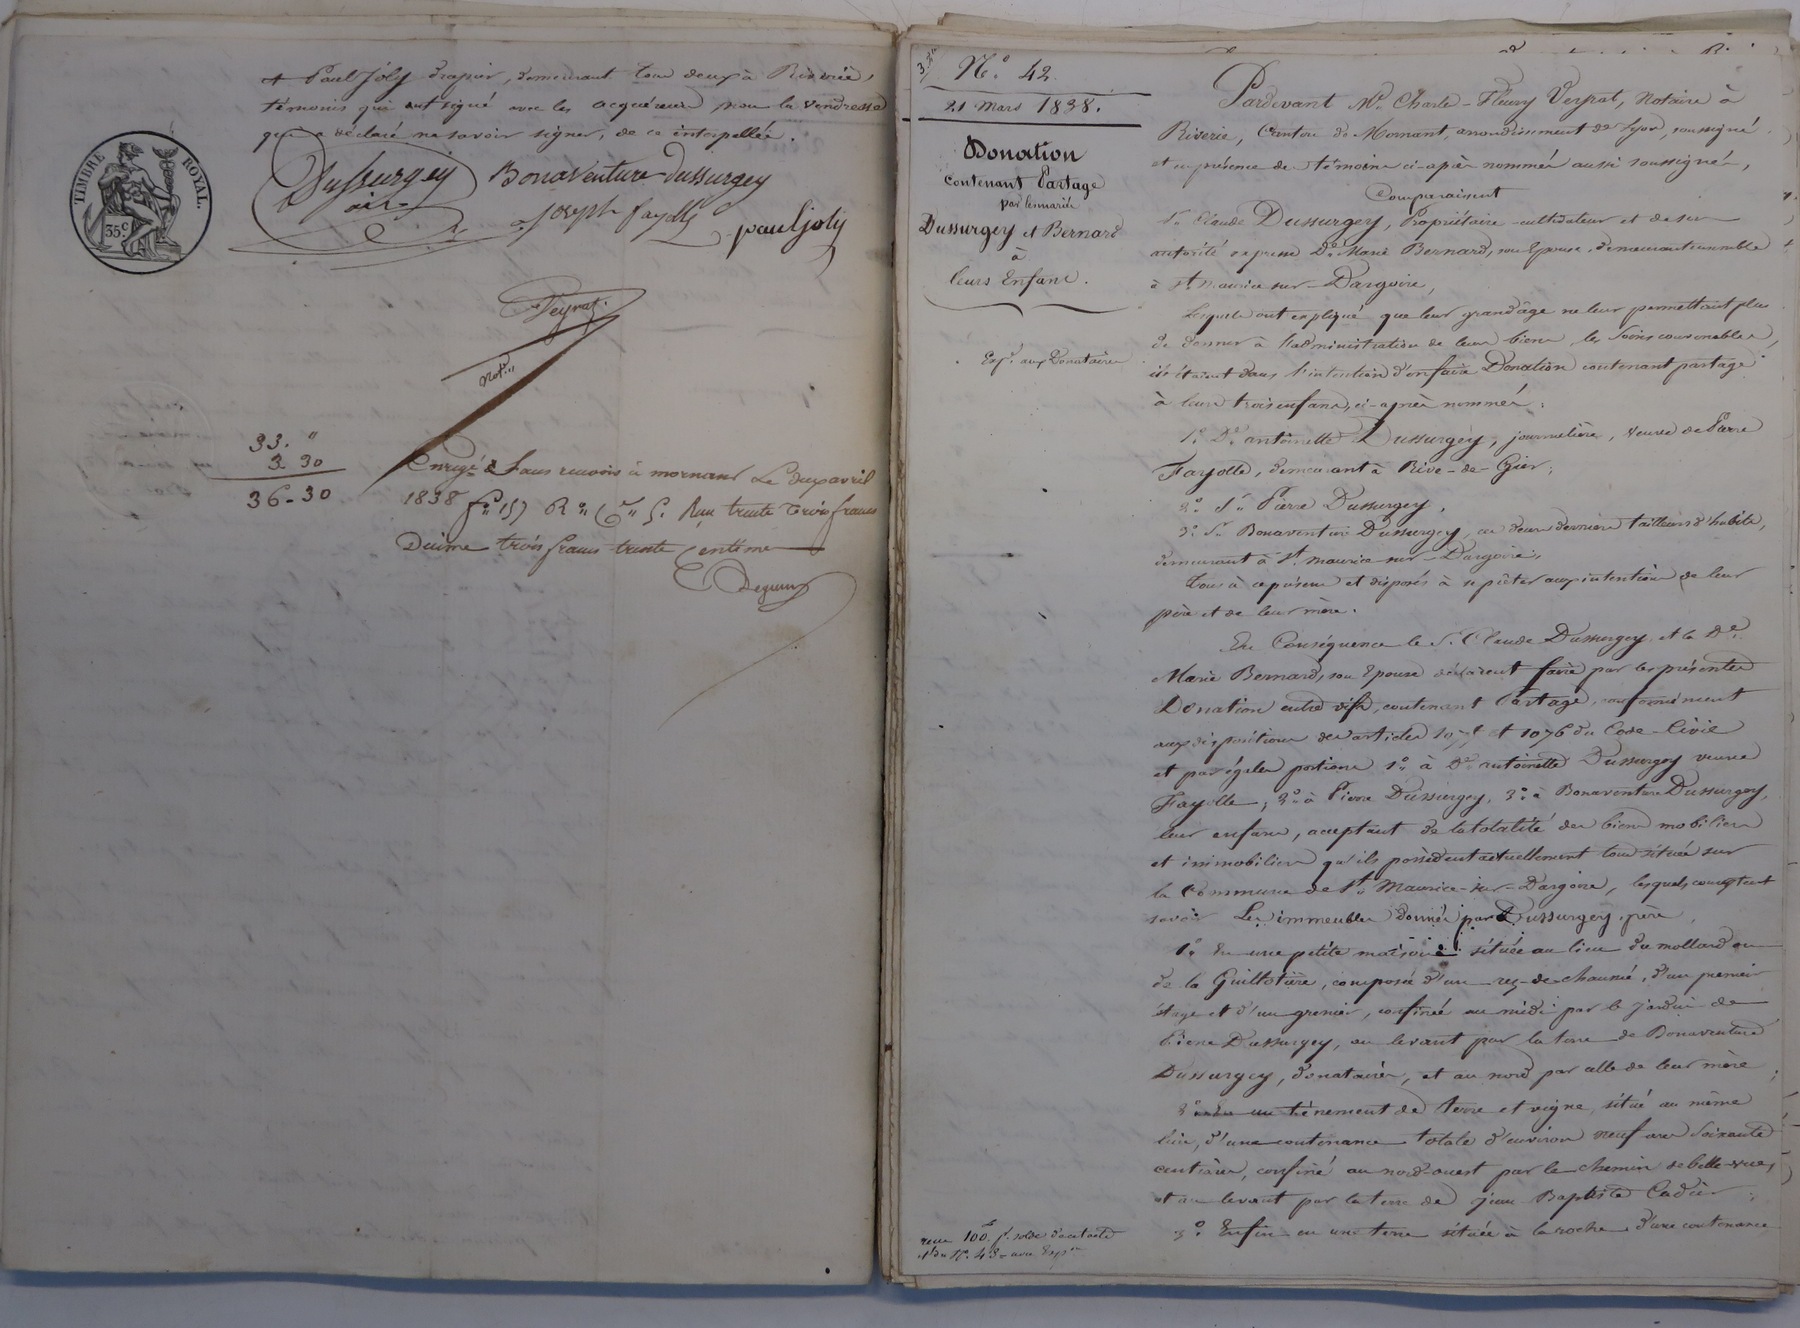 & Paul Joly drapier, demeurant tous deux à Riverie,
témoins qui ont signé avec les acquéreurs, non la venderesse
qui a déclaré ne savoir signer, de ce interpellée.
TIMBRE ROYAL.
35 c
Dussurgey Bonaventure Dussurgey
ainé
joseph fayolle
paul joly
Veyrat
Not.re
33. "
3 30
36-30
Enregé sans renvois à mornant Le deux avril
1838 fo 157 Ro Ce 5. Reçu trente trois francs
Décime trois francs trente Centimes
No. 42.
21 Mars 1838.
Donation
contenant Partage
par les mariés
Dussurgey et Bernard
à
leurs Enfans.
Exp. aux Donataires
Pardevant Me Charles-Fleury Veyrat, Notaire à
Riverie, Canton de Mornant, arrondissement de Lyon, soussigné
et en présence des témoins ci-après nommés aussi soussignés,
Comparaissent
Sr. Claude Dussurgey, Propriétaire-cultivateur et de son
autorité expresse De. Marie Bernard, son Epouse, demeurant ensemble
à St. Maurice-sur-Dargoire,
Lesquels ont expliqué que leur grand âge ne leur permettant plus
de donner à l'administration de leurs biens, les soins convenables,
ils étaient dans l'intention d'en faire Donation contenant partage
à leurs trois enfans, ci-après nommés:
1o. De. antoinette Dussurgey, journalière, veuve de Pierre
Fayolle, demeurant à Rive-de-Gier;
2o. Sr. Pierre Dussurgey,
3o. Sr. Bonaventure Dussurgey, ces deux derniers tailleurs d'habits,
demeurant à St. Maurice-sur-Dargoire;
Tous à ce présens et disposés à se prêter aux intentions de leur
père et de leur mère.
En Conséquence le S. Claude Dussurgey et la De.
Marie Bernard, son Epouse déclarent faire par les présentes
Donation entre vifs, contenant Partage, conformément
aux dispositions des articles 1075 et 1076 du Code-Civil
et par égales portions 1o. à De. antoinette Dussurgey veuve
Fayolle, 2o. à Pierre Dussurgey, 3o. à Bonaventure Dussurgey,
leurs enfans, acceptant de la totalité des biens mobiliers
et immobiliers qu'ils possèdent actuellement tous situés sur
la Commune de St. Maurice-sur-Dargoire, lesquels consistent
savoir Les immeubles donnés par Dussurgey, père,
1o. En une petite maison située au lieu du mollard ou
de la Guillotière, composée d'un rez-de-chaussée, d'un premier
étage et d'un grenier, confinée au midi par le jardin de
Pierre Dussurgey, au levant par la terre de Bonaventure
Dussurgey, donataires, et au nord par celle de leur mère;
2o. En un tènement de terre et vigne, situé au même
lieu, d'une contenance totale d'environ neuf ares soixante
centiares, confiné au nord-ouest par le chemin de belle-vue,
et au levant par la terre de Jean Baptiste Cadier;
3o. Enfin en une terre située à la roche d'une contenance
reçu 100 f. solde de cet acte
et du No. 43 avec Exp.on